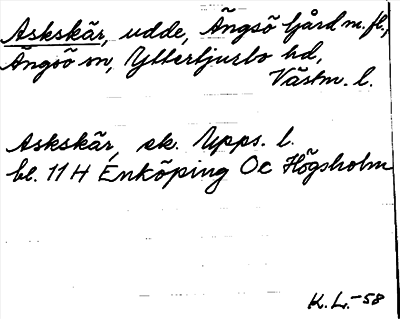 Askskär, udde, Ängsö Gård m. fl.,
Ängsö sn, Yttertjurbo hd,
Västm. l.
Askskär, ek. Upps. l.
bl. 11 H Enköping Oc Högsholm
K. L. -58